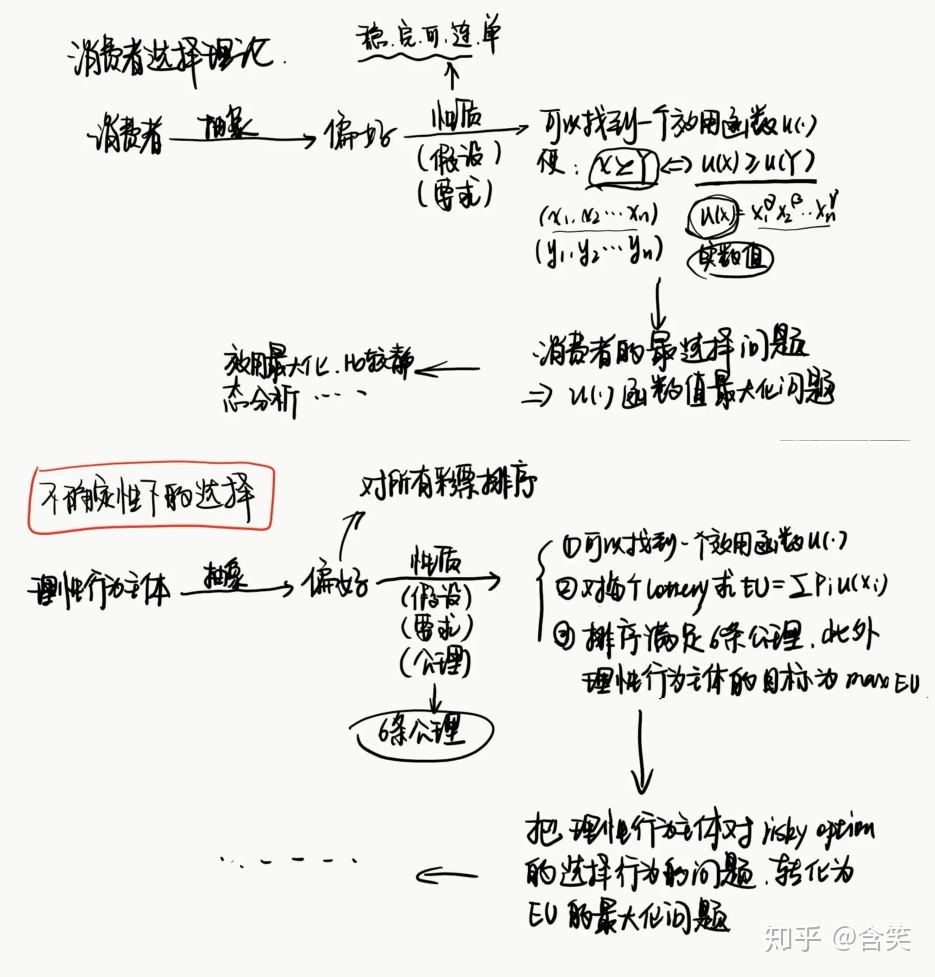 消费者选择理论.
稳.完.可.连.单
消费者 抽象 偏好 性质 可以找到一个效用函数u(·)
(假设) 使: X≥Y ⇔ u(X)≥u(Y)
(要求)
(x₁.x₂…xₙ) u(x)=x₁ x₂…xₙ
(y₁.y₂…yₙ) 实数值
消费者的最选择问题
⇒ u(·)函数值最大化问题
效用最大化.比较静
态分析 ……
不确定性下的选择
对所有彩票排序
理性行为主体 抽象 偏好 性质
(假设)
(要求)
(公理)
6条公理
①可以找到一个效用函数u(·)
②对每个lottery求EU=ΣPiu(xi)
③排序满足6条公理.此外
理性行为主体的目标为max EU
把理性行为主体对risky option
的选择行为的问题.转化为
EU的最大化问题
……
知乎 @含笑